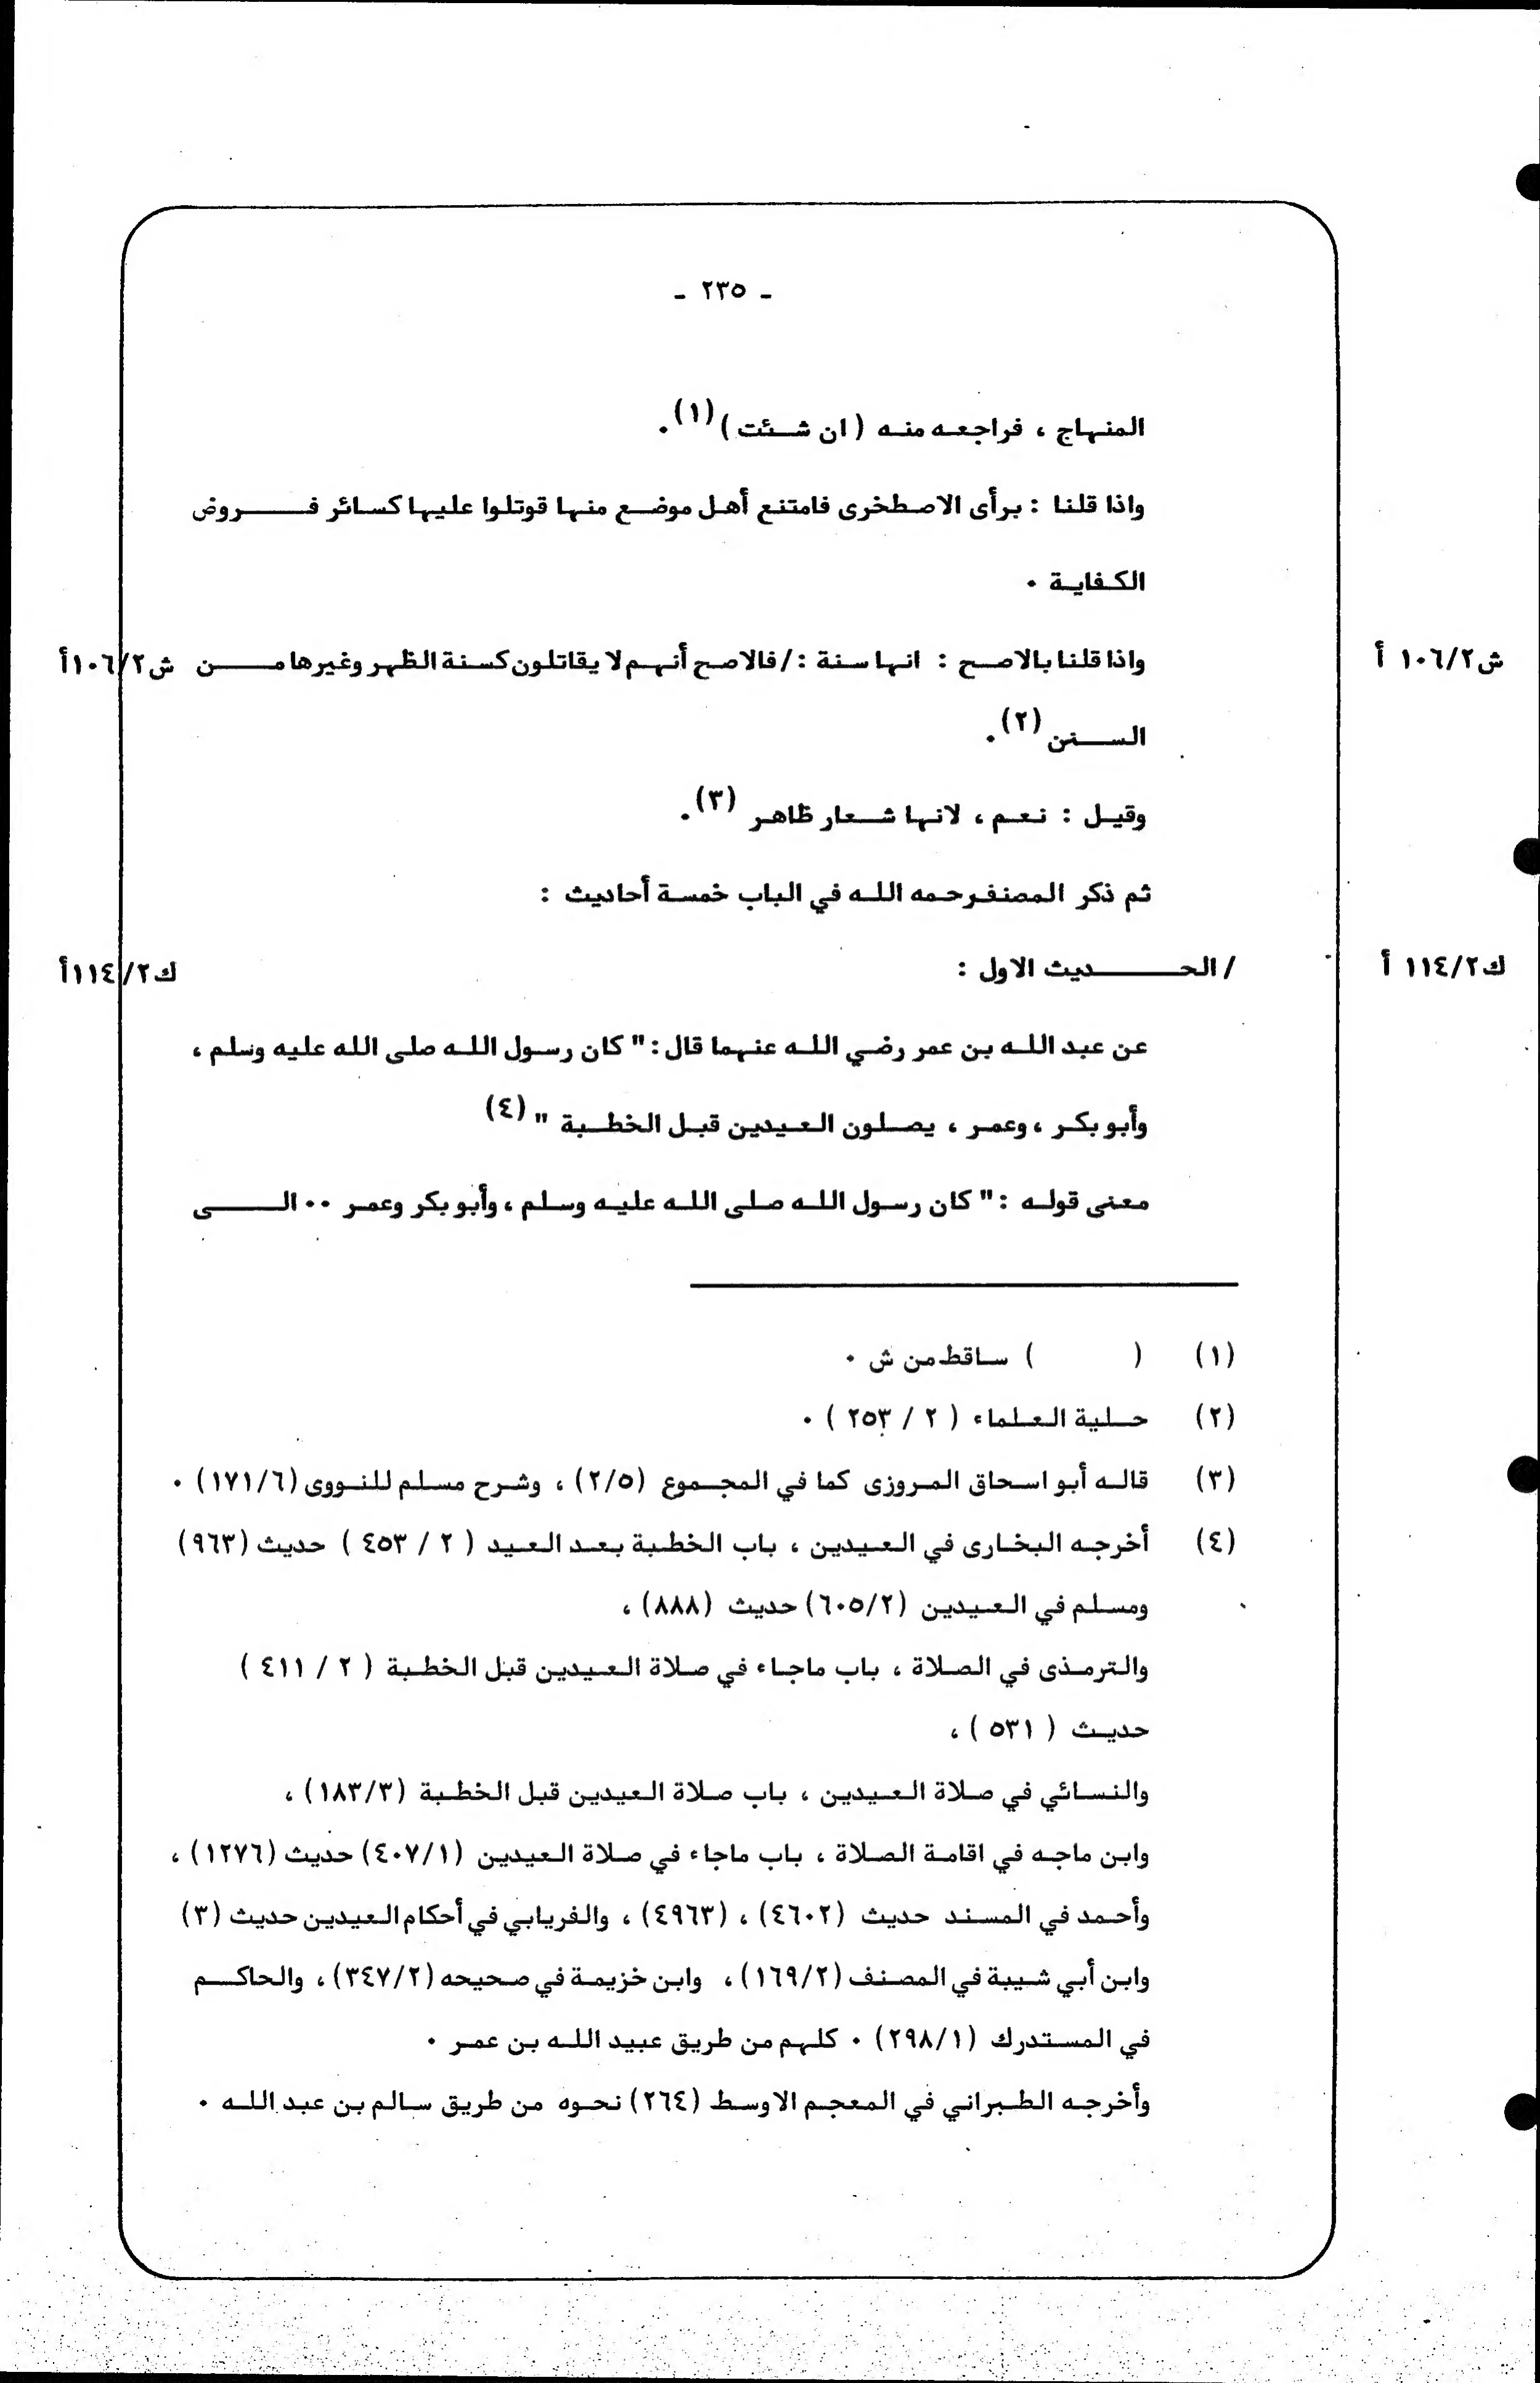 - ٢٣٥ -
المنهاج ، فراجعه منه ( ان شئت ) (١) ٠
واذا قلنا : برأى الاصطخرى فامتنع أهل موضع منها قوتلوا عليها كسائر فروض
الكفاية ٠
ش٢/١٠٦ أ
واذا قلنا بالاصح : انها سنة : / فالاصح أنهم لا يقاتلون كسنة الظهر وغيرها من
ش٢/١٠٦أ
السنن (٢) ٠
وقيل : نعم ، لانها شعار ظاهر (٣) ٠
ثم ذكر المصنف رحمه الله في الباب خمسة أحاديث :
ك٢/١١٤ أ
/ الحديث الاول :
ك٢/١١٤أ
عن عبد الله بن عمر رضي الله عنهما قال : " كان رسول الله صلى الله عليه وسلم ،
وأبو بكر ، وعمر ، يصلون العيدين قبل الخطبة " (٤)
معنى قوله : " كان رسول الله صلى الله عليه وسلم ، وأبو بكر وعمر ٠٠ الى
(١) ( ) ساقط من ش ٠
(٢) حلية العلماء ( ٢ / ٢٥٣ ) ٠
(٣) قاله أبو اسحاق المروزى كما في المجموع (٢/٥) ، وشرح مسلم للنووى (١٧١/٦) ٠
(٤) أخرجه البخارى في العيدين ، باب الخطبة بعد العيد ( ٢ / ٤٥٣ ) حديث (٩٦٣)
ومسلم في العيدين (٦٠٥/٢) حديث (٨٨٨) ،
والترمذى في الصلاة ، باب ماجاء في صلاة العيدين قبل الخطبة ( ٢ / ٤١١ )
حديث ( ٥٣١ ) ،
والنسائي في صلاة العيدين ، باب صلاة العيدين قبل الخطبة (١٨٣/٣) ،
وابن ماجه في اقامة الصلاة ، باب ماجاء في صلاة العيدين (٤٠٧/١) حديث (١٢٧٦) ،
وأحمد في المسند حديث (٤٦٠٢) ، (٤٩٦٣) ، والفريابي في أحكام العيدين حديث (٣)
وابن أبي شيبة في المصنف (١٦٩/٢) ، وابن خزيمة في صحيحه (٣٤٧/٢) ، والحاكم
في المستدرك (٢٩٨/١) ٠ كلهم من طريق عبيد الله بن عمر ٠
وأخرجه الطبراني في المعجم الاوسط (٢٦٤) نحوه من طريق سالم بن عبد الله ٠